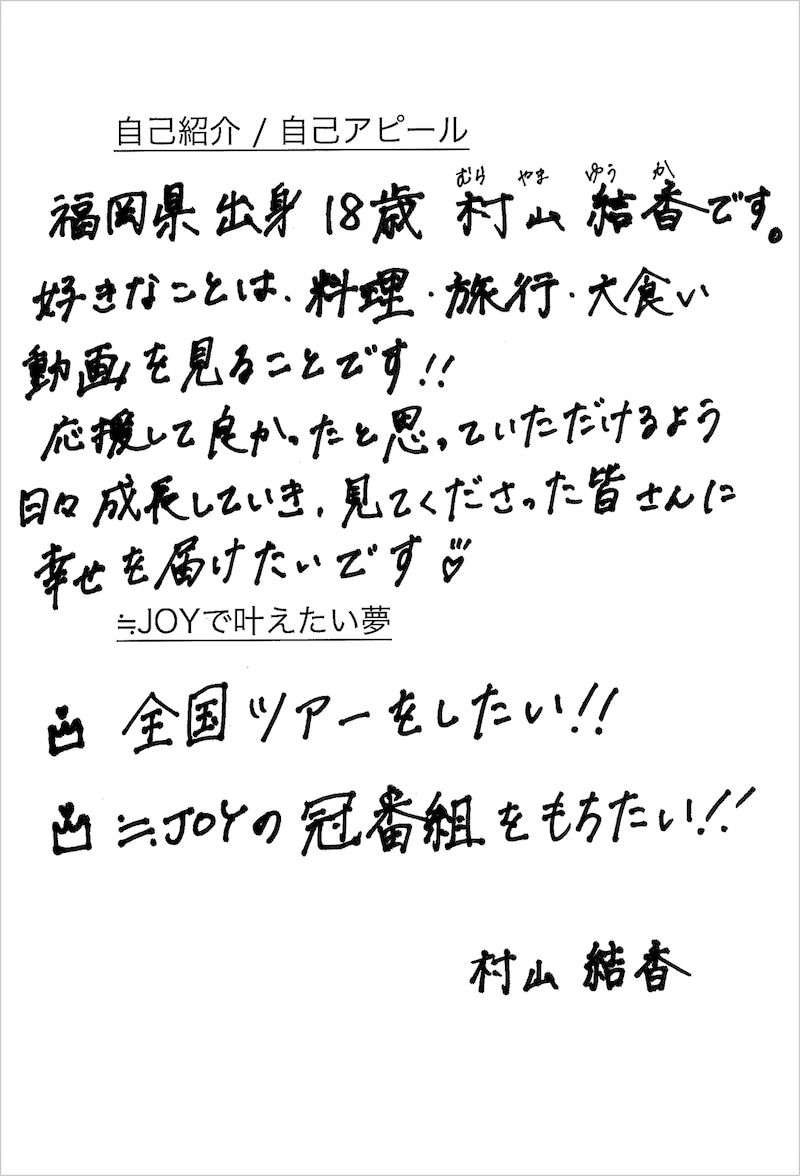 自己紹介 / 自己アピール
むら やま ゆう か
福岡県出身 18歳 村山 結香です。
好きなことは、料理・旅行・大食い
動画を見ることです!!
応援して良かったと思っていただけるよう
日々成長していき、見てくださった皆さんに
幸せを届けたいです♡
≒JOYで叶えたい夢
全国ツアーをしたい!!
≒JOYの冠番組をもちたい!!
村山 結香